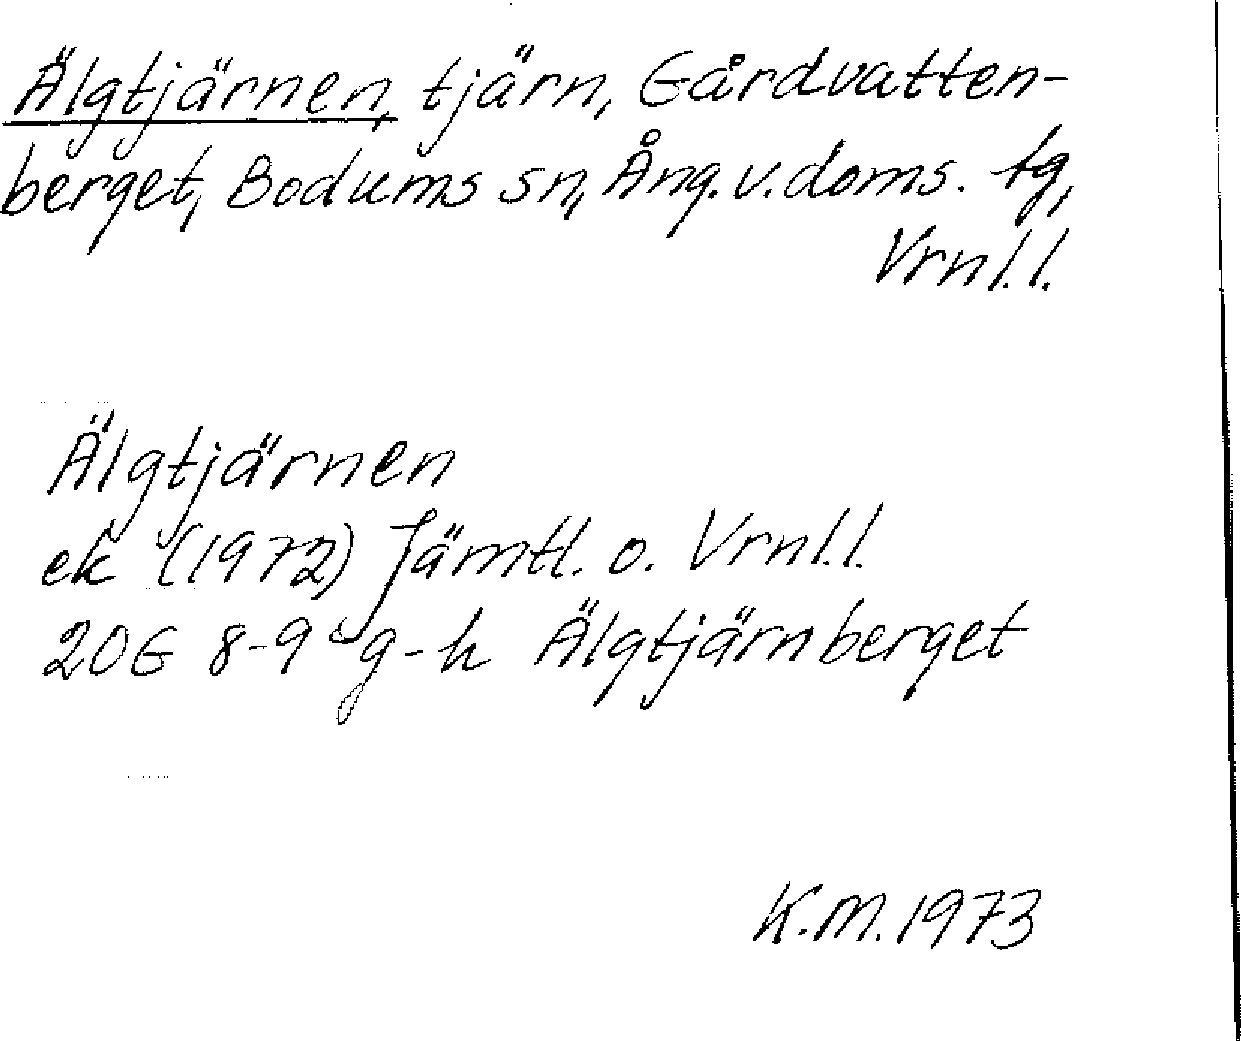 Älgtjärnen, tjärn, Gårdvatten-
berget, Bodums sn, Ång. v. doms. tg,
Vrnl. l.
Älgtjärnen
ek (1972) Jämtl. o. Vrnl. l.
20G 8-9 g-h Älgtjärnberget
K.M. 1973